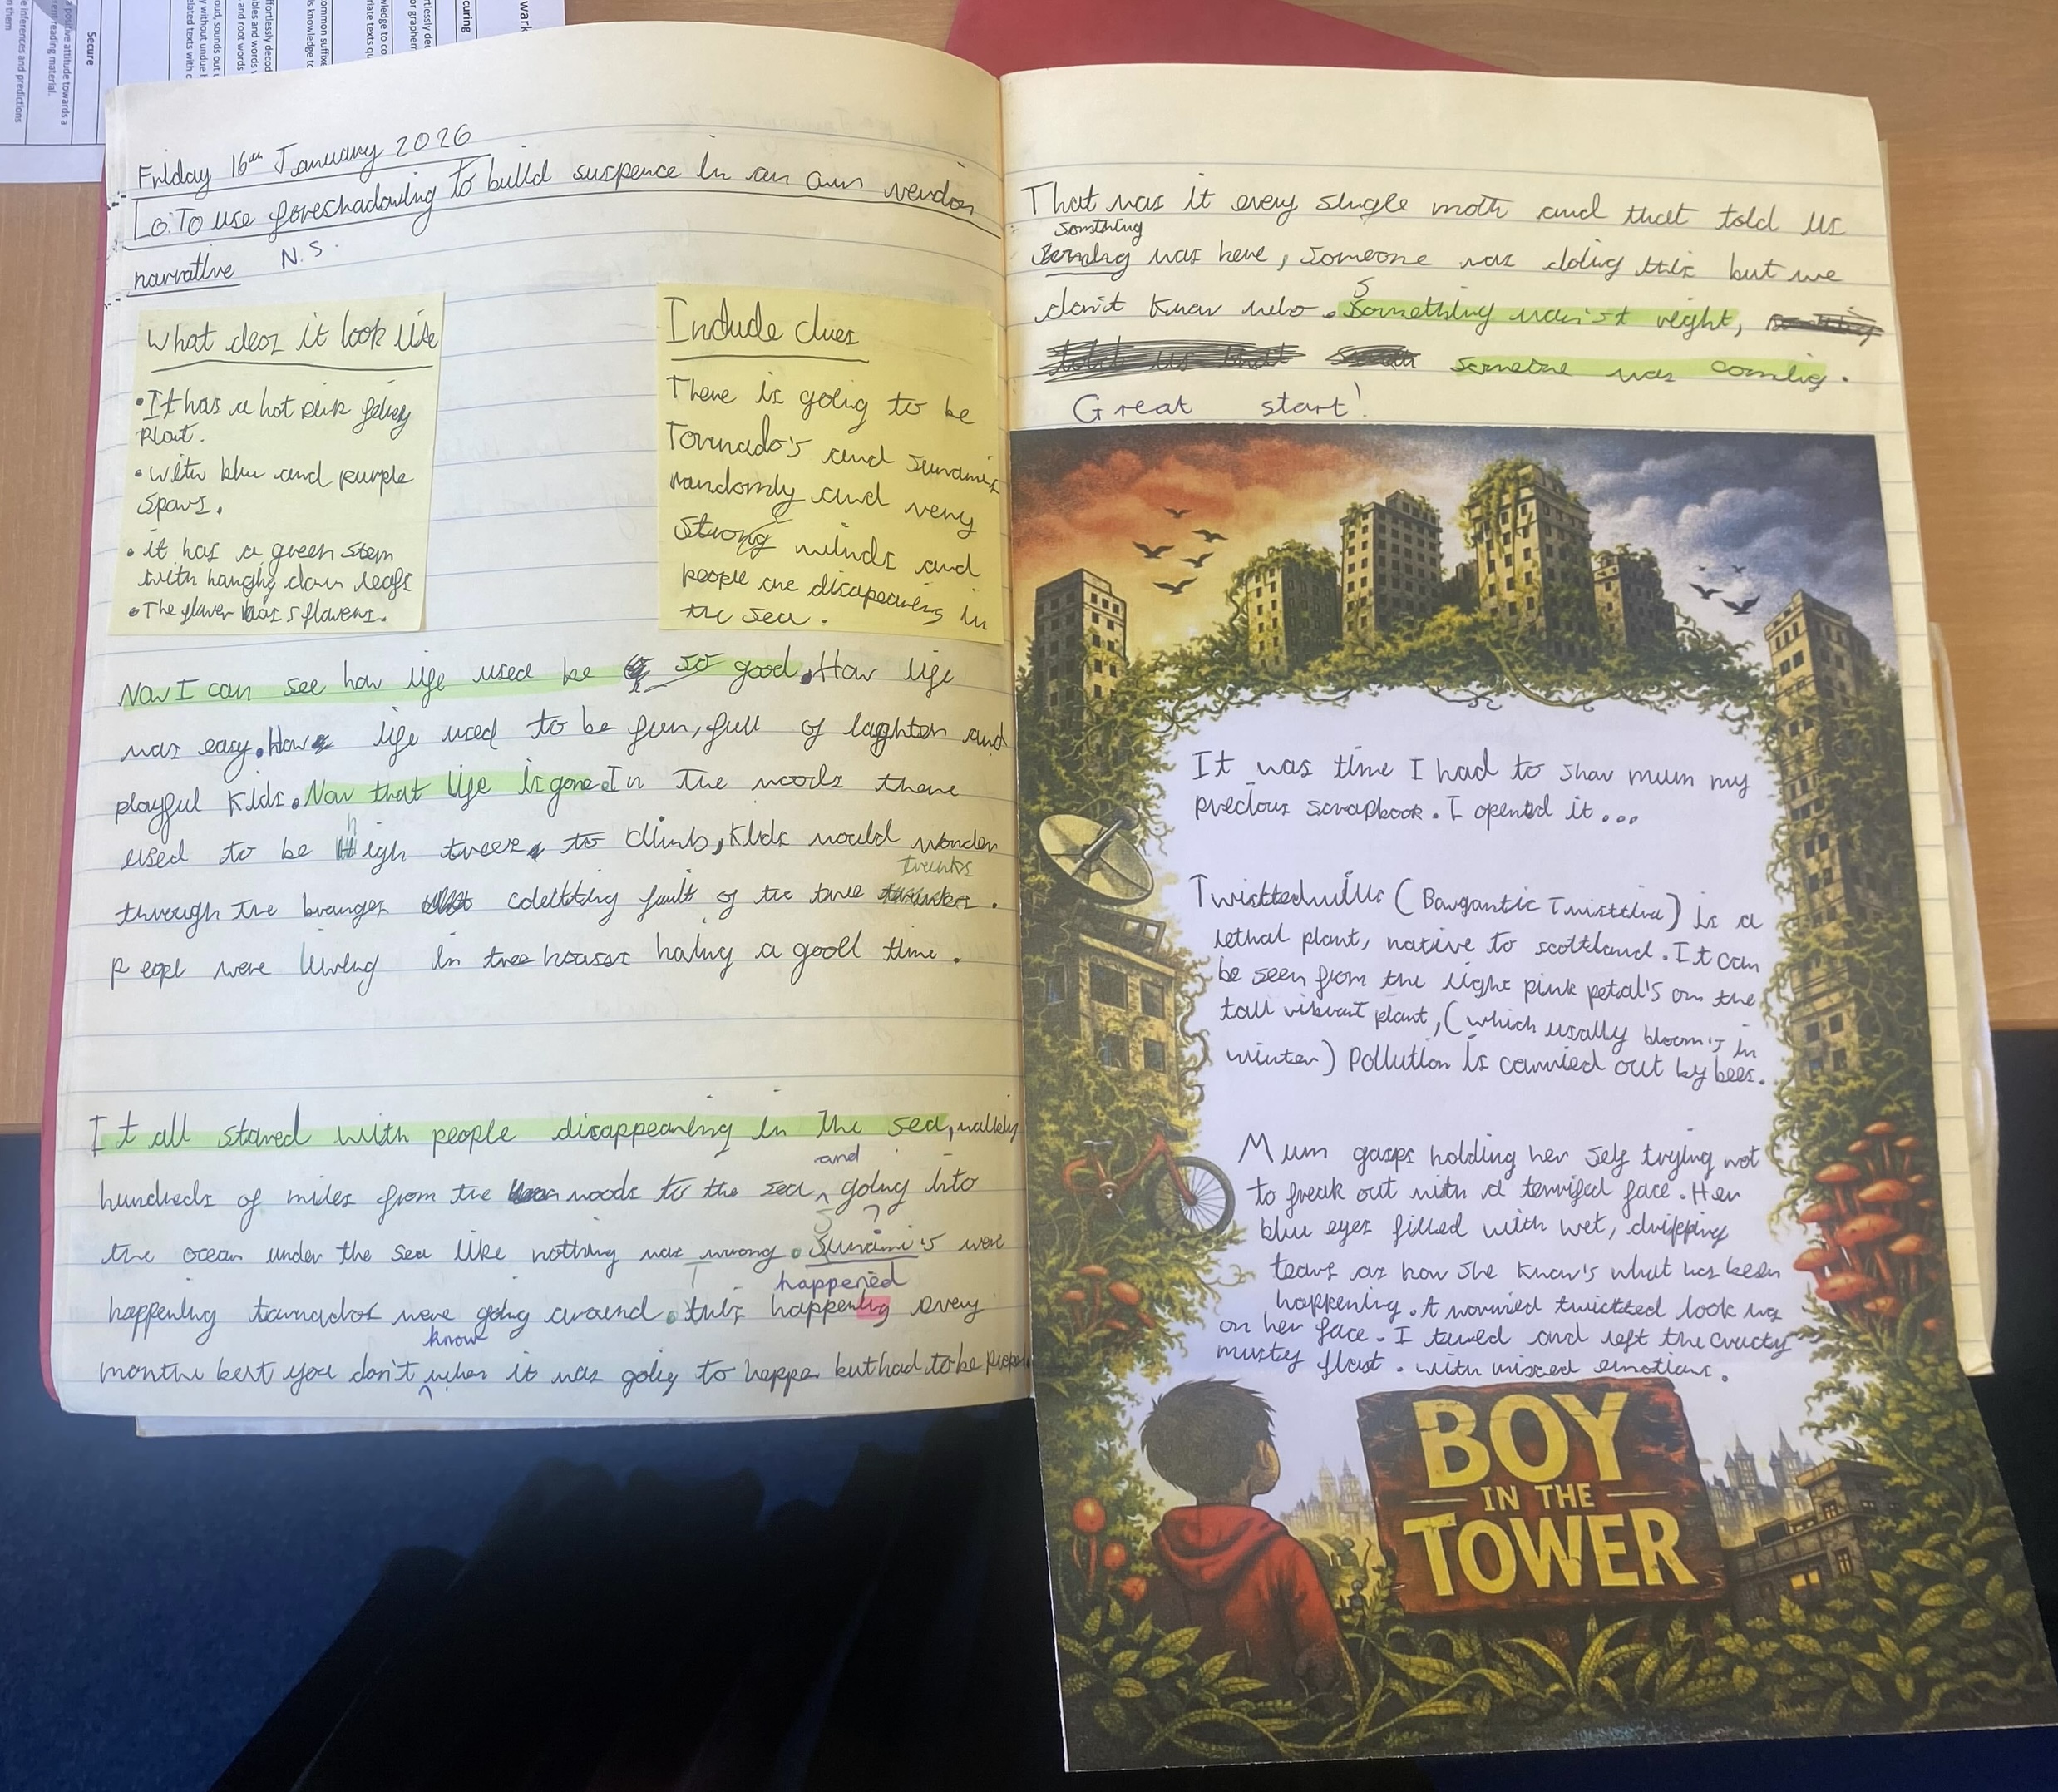 Friday 16th January 2026
Lo: To use foreshadowing to build suspence in an own version
narrative N.S.
What deos it look like
• It has a hot pink
Plant.
• with blue and purple
spows.
• it has a green stem
with hanging down leafs
• The flawer has 5 flawers.
Include clues
There is going to be
Tornado's and sunamis
randomly and very
strong winds and
people are disapearing in
the sea.
Now I can see how life used be so good. How life
was easy. How life used to be fun, full of laghter and
playful kids. Now that life is gone. In the woods there
used to be high trees to climb, kids would wonder
trunks
through the branges coletting fruit of the tree
Peopl were living in tree houses having a good time.
It all stared with people disappearing in the sea, walking
and
hundreds of miles from the woods to the sea going into
the ocean under the sea like nothing was wrong. Sunami's were
happened
happening tornados were going around. this happening every
know
month but you don't when it was going to happe but had to be
That was it every single moth and that told us
somthing
was here, someone was doing this but we
don't know who. Something was'nt right,
someone was coming.
Great start!
It was time I had to show mum my
precious scrapbook. I opened it...
Twisttedwillis (Bangantic Twisttlia) is a
lethal plant, native to scottland. It can
be seen from the light pink petal's on the
tall vibrant plant, (which usally bloom's in
winter) Pollution is carried out by bees.
Mum gasps holding her self trying not
to freak out with a terrifed face. Her
blue eyes filled with wet, dripping
tears as now she know's what has been
happening. A worried twistted look was
on her face. I turned and left the crusty
musty flat. with mixed emotions.
BOY
IN THE
TOWER
Secure